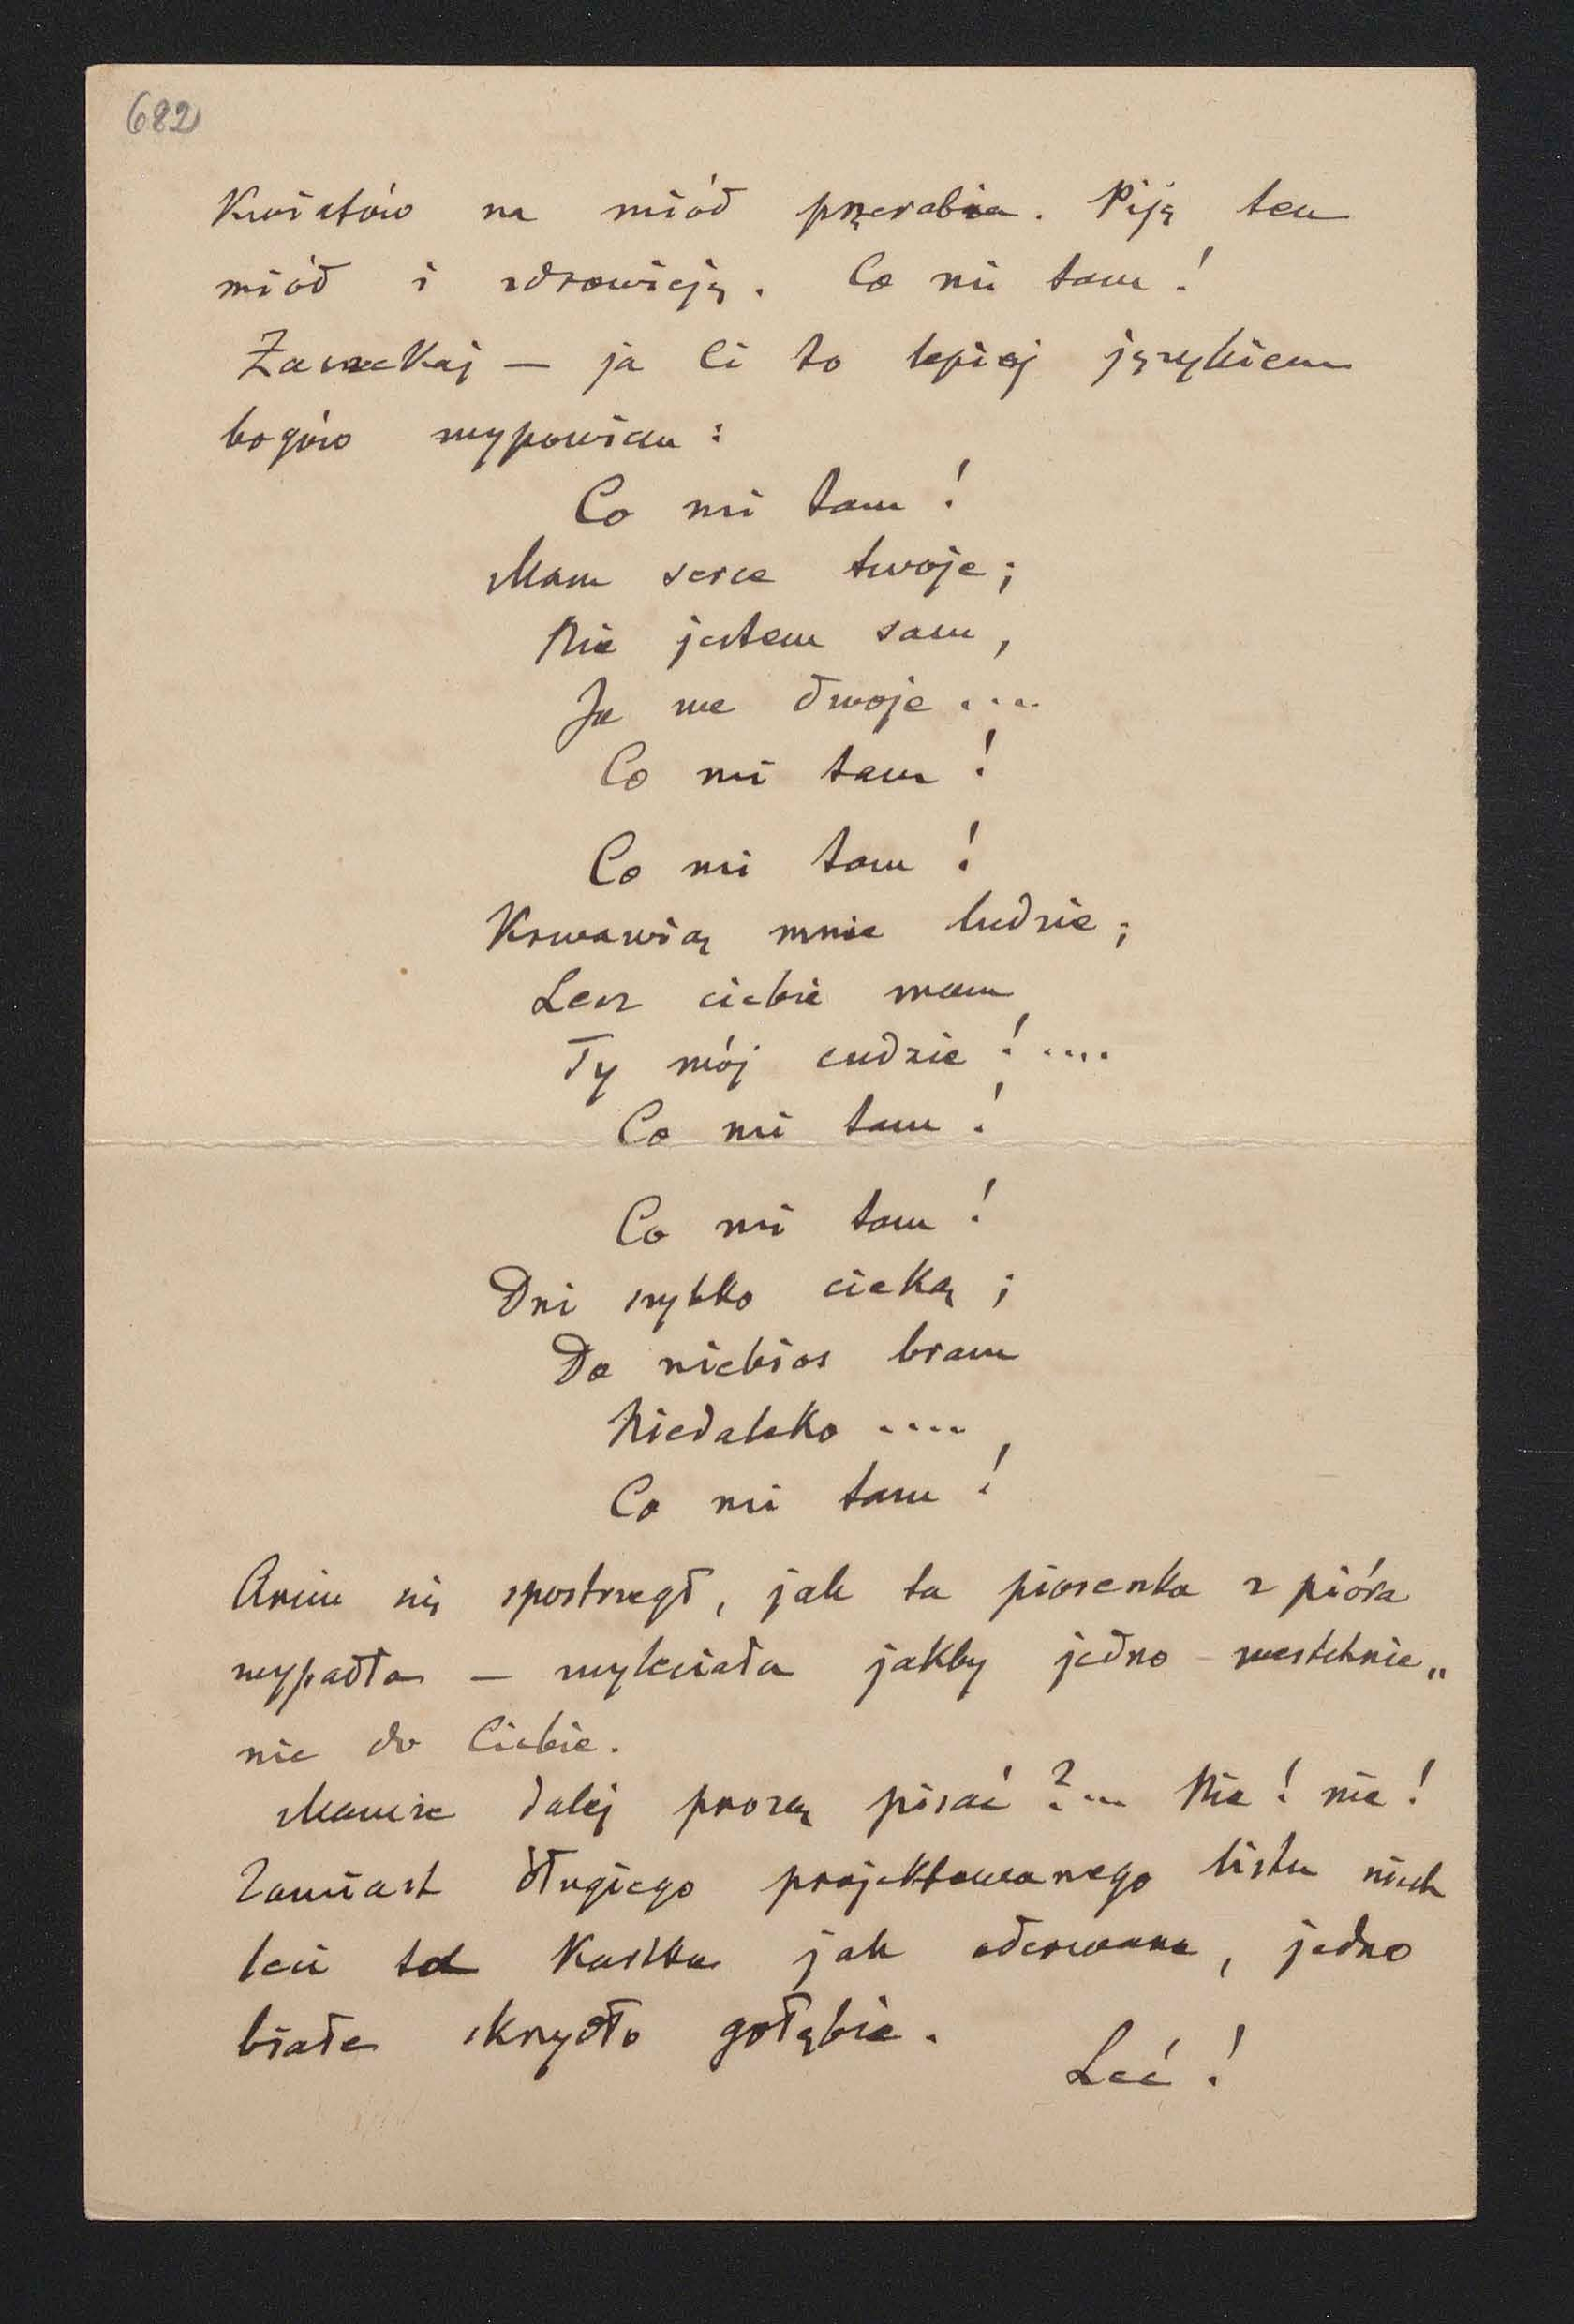 682
Kwiatów na miód przerabia. Piję ten
miód i zdrowieję. Co mi tam!
Zaczekaj — ja Ci to lepiej językiem
bogów wypowiem:
Co mi tam!
Mam serce twoje;
Nie jestem sam,
Ja we dwoje....
Co mi tam!
Co mi tam!
Krwawią mnie ludzie;
Lecz ciebie mam
Ty mój cudzie!....
Co mi tam!
Co mi tam!
Dni szybko cieką;
Do niebios bram
Niedaleko....
Co mi tam!
Anim się spostrzegł, jak ta piosenka z pióra
wypadła — wyleciała jakby jedno westchnie„
nie do Ciebie.
Mamże dalej prozą pisać?... Nie! nie!
Zamiast długiego projektowanego listu niech
leci ta kartka jak oderwane, jedno
białe skrzydło gołębie.
Leć!